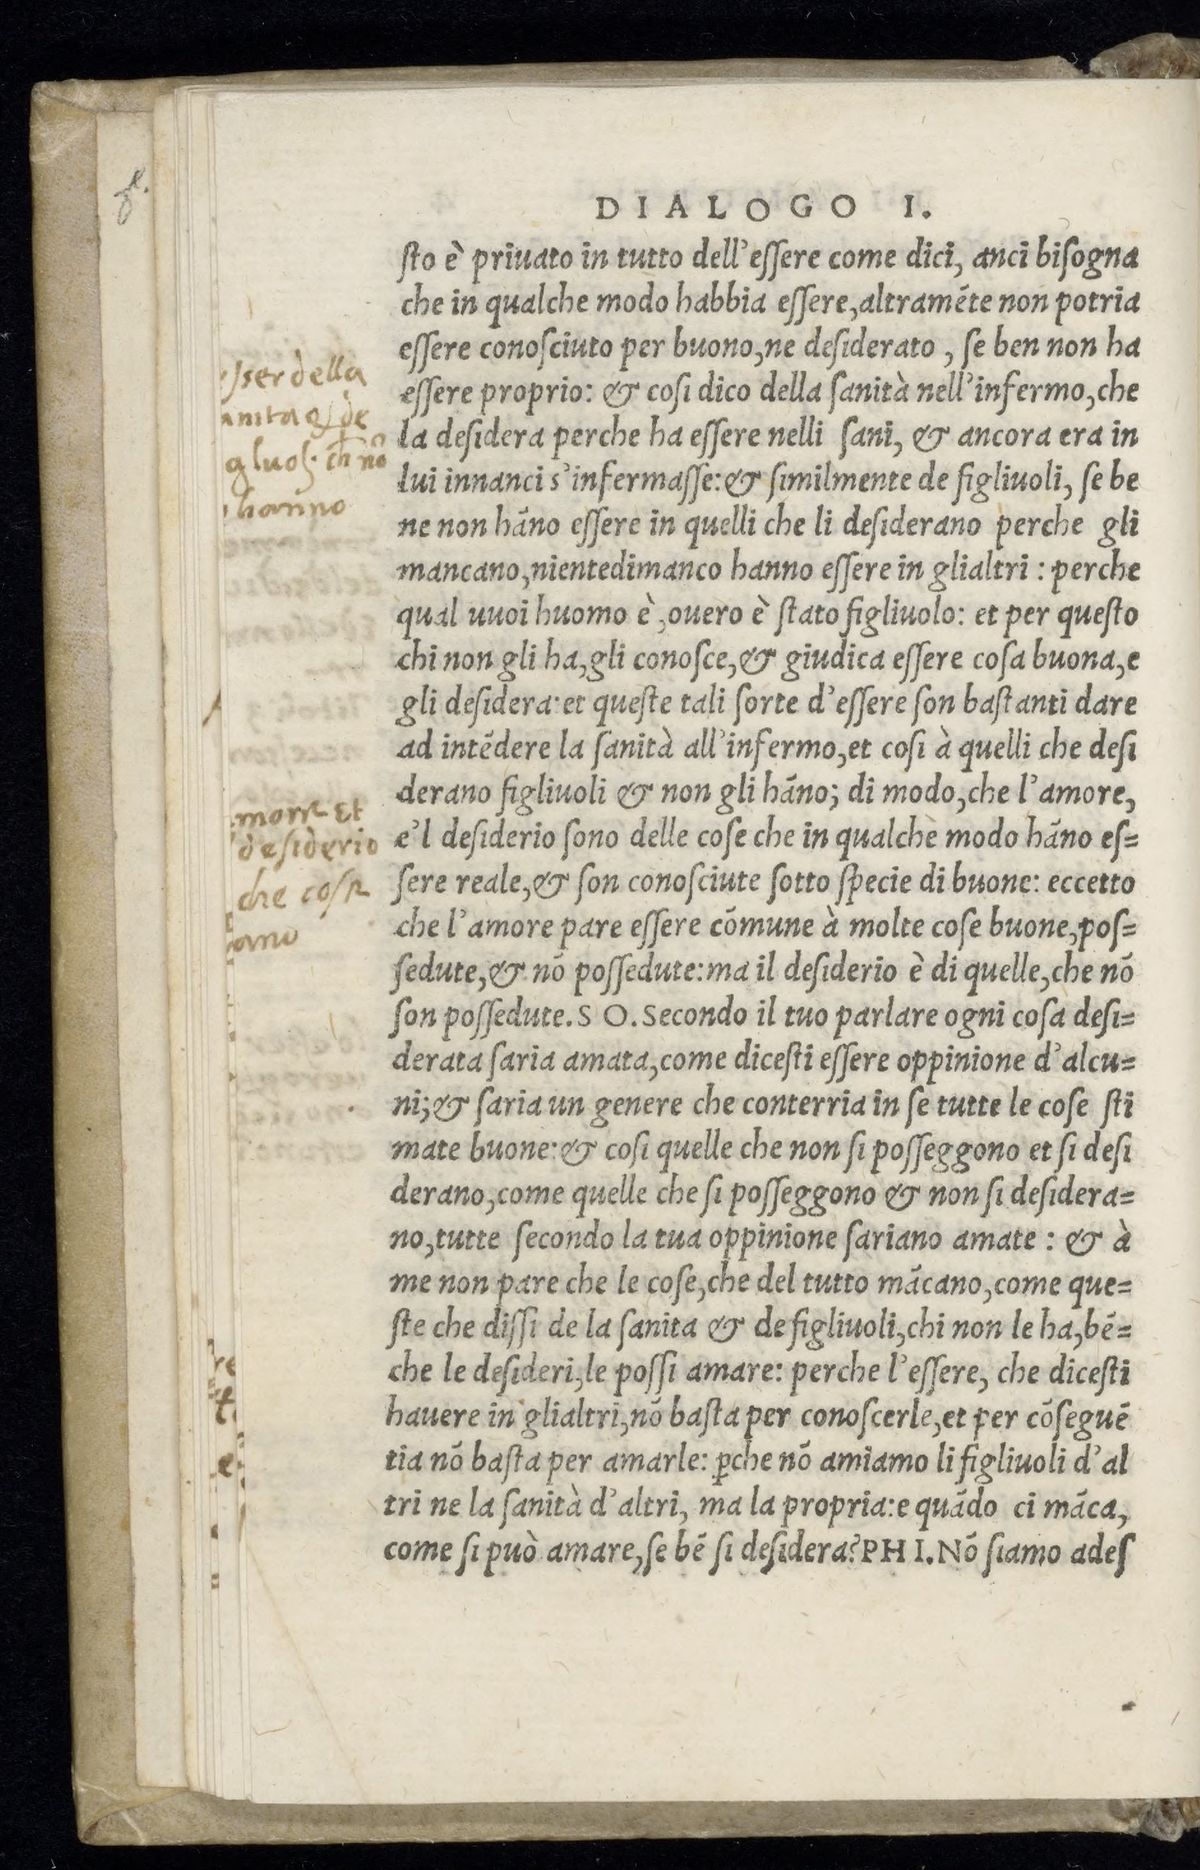 DIALOGO I.
sto è priuato in tutto dell'essere come dici, anci bisogna
che in qualche modo habbia essere,altramẽte non potria
essere conosciuto per buono,ne desiderato , se ben non ha
essere proprio: & cosi dico della sanità nell'infermo,che
la desidera perche ha essere nelli sani, & ancora era in
lui innanci s'infermasse:& similmente de figliuoli, se be
ne non hãno essere in quelli che li desiderano perche gli
mancano,nientedimanco hanno essere in glialtri : perche
qual uuoi huomo è ,ouero è stato figliuolo: et per questo
chi non gli ha,gli conosce,& giudica essere cosa buona,e
gli desidera:et queste tali sorte d'essere son bastanti dare
ad intẽdere la sanità all'infermo,et cosi à quelli che desi
derano figliuoli & non gli hãno; di modo,che l'amore,
e'l desiderio sono delle cose che in qualche modo hãno es=
sere reale,& son conosciute sotto specie di buone: eccetto
che l'amore pare essere cõmune à molte cose buone,pos=
sedute,& nõ possedute:ma il desiderio è di quelle,che nõ
son possedute. S O. Secondo il tuo parlare ogni cosa desi=
derata saria amata,come dicesti essere oppinione d'alcu=
ni;& saria un genere che conterria in se tutte le cose sti
mate buone:& cosi quelle che non si posseggono et si desi
derano,come quelle che si posseggono & non si desidera=
no,tutte secondo la tua oppinione sariano amate : & à
me non pare che le cose,che del tutto mãcano,come que=
ste che dissi de la sanita & de figliuoli,chi non le ha,bẽ=
che le desideri,le possi amare: perche l'essere, che dicesti
hauere in glialtri,nõ basta per conoscerle,et per cõseguẽ
tia nõ basta per amarle: ꝑche nõ amiamo li figliuoli d'al
tri ne la sanità d'altri, ma la propria:e quãdo ci mãca,
come si può amare,se bẽ si desidera? PH I. Nõ siamo ades
esser della
hanno
amore et
desiderio
che cose